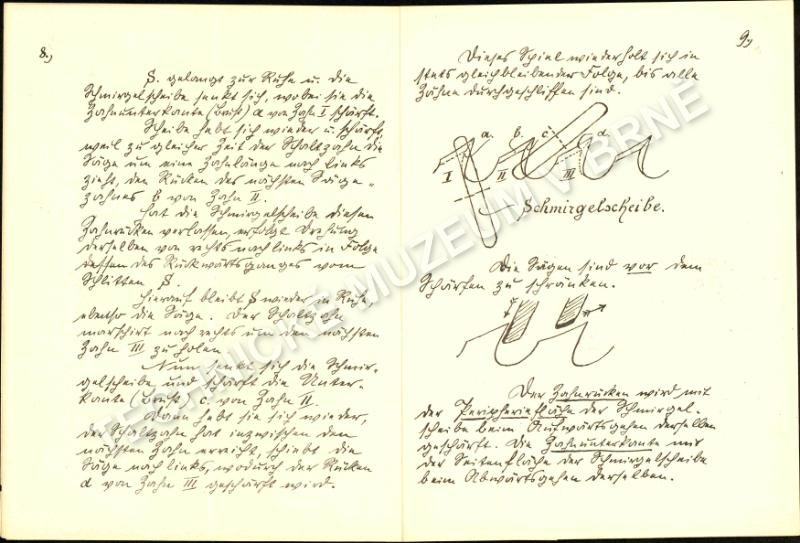 8.)
S. gelangt zur Ruhe u. die
Schmirgelscheibe senkt sich, wobei sie die
Zahnunterkante (Brust) a von Zahn I schärft.
Scheibe hebt sich wieder u. schärft,
weil zu gleicher Zeit der Schaltzahn die
Säge um eine Zahnlänge nach links
zieht, den Rücken des nächsten Säge-
zahnes b von Zahn II.
Hat die Schmirgelscheibe diesen
Zahnrücken verlassen, erfolgt Drehung
derselben von rechts nach links in Folge
dessen des Rückwärtsganges vom
Schlitten S.
Hierauf bleibt S wieder in Ruhe,
ebenso die Säge. Der Schaltzahn
marschirt nach rechts um den nächsten
Zahn III zu holen.
Nun senkt sich die Schmir-
gelscheibe und schärft die Unter-
kante (Brust) c von Zahn II.
Dann hebt sie sich wieder,
der Schaltzahn hat inzwischen den
nächsten Zahn erreicht, schiebt die
Säge nach links, wodurch der Rücken
d von Zahn III geschärft wird.
9.)
Dieses Spiel wiederholt sich in
stets gleichbleibender Folge, bis alle
Zähne durchgeschliffen sind.
a. b. c. d.
I II III
Schmirgelscheibe.
Die Sägen sind vor dem
Schärfen zu schränken.
Der Zahnrücken wird mit
der Peripheriefläche der Schmirgel-
scheibe beim Aufwärtsgehen derselben
geschärft. Die Zahnunterkante mit
der Seitenfläche der Schmirgelscheibe
beim Abwärtsgehen derselben.
TECHNICKÉ MUZEUM V BRNĚ